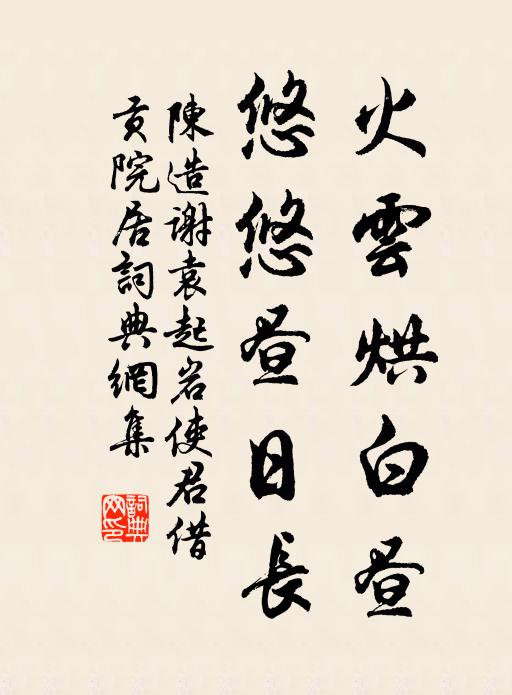 火雲烘白昼
悠悠昼日長
陳造謝袁起岩使君借
貢院居詞典網集
詞典
网印